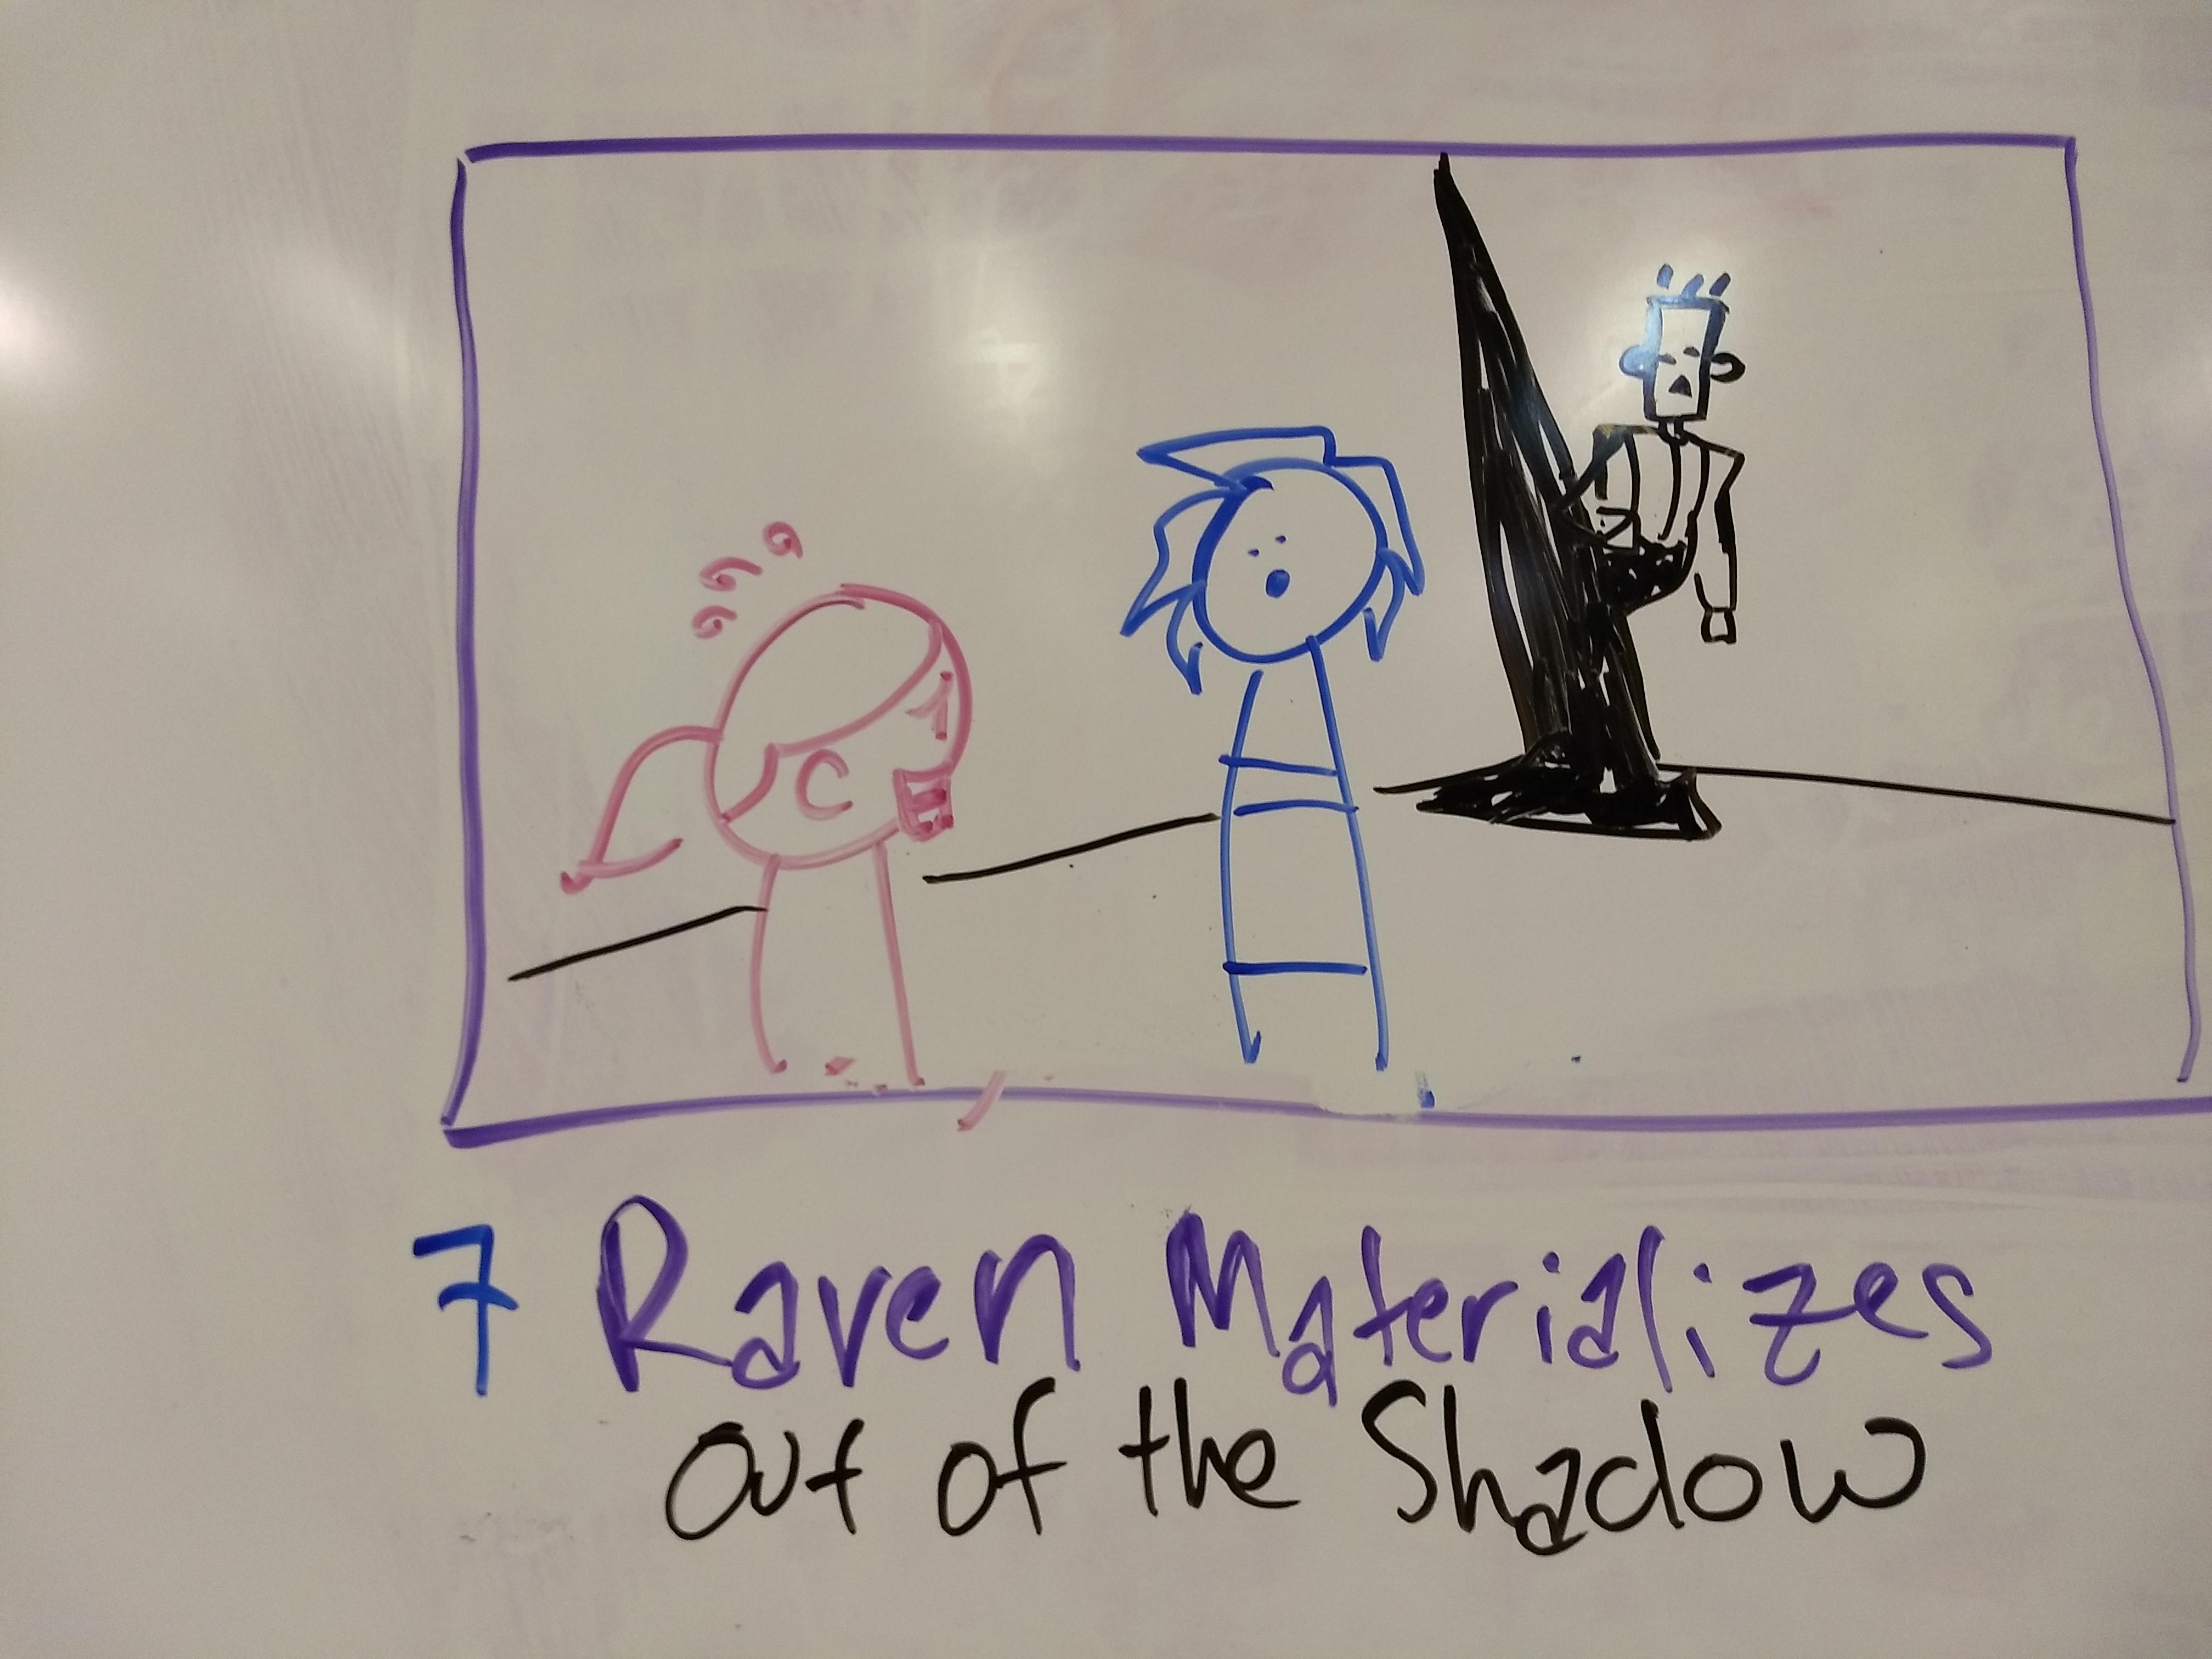 7 Raven Materializes
out of the Shadow